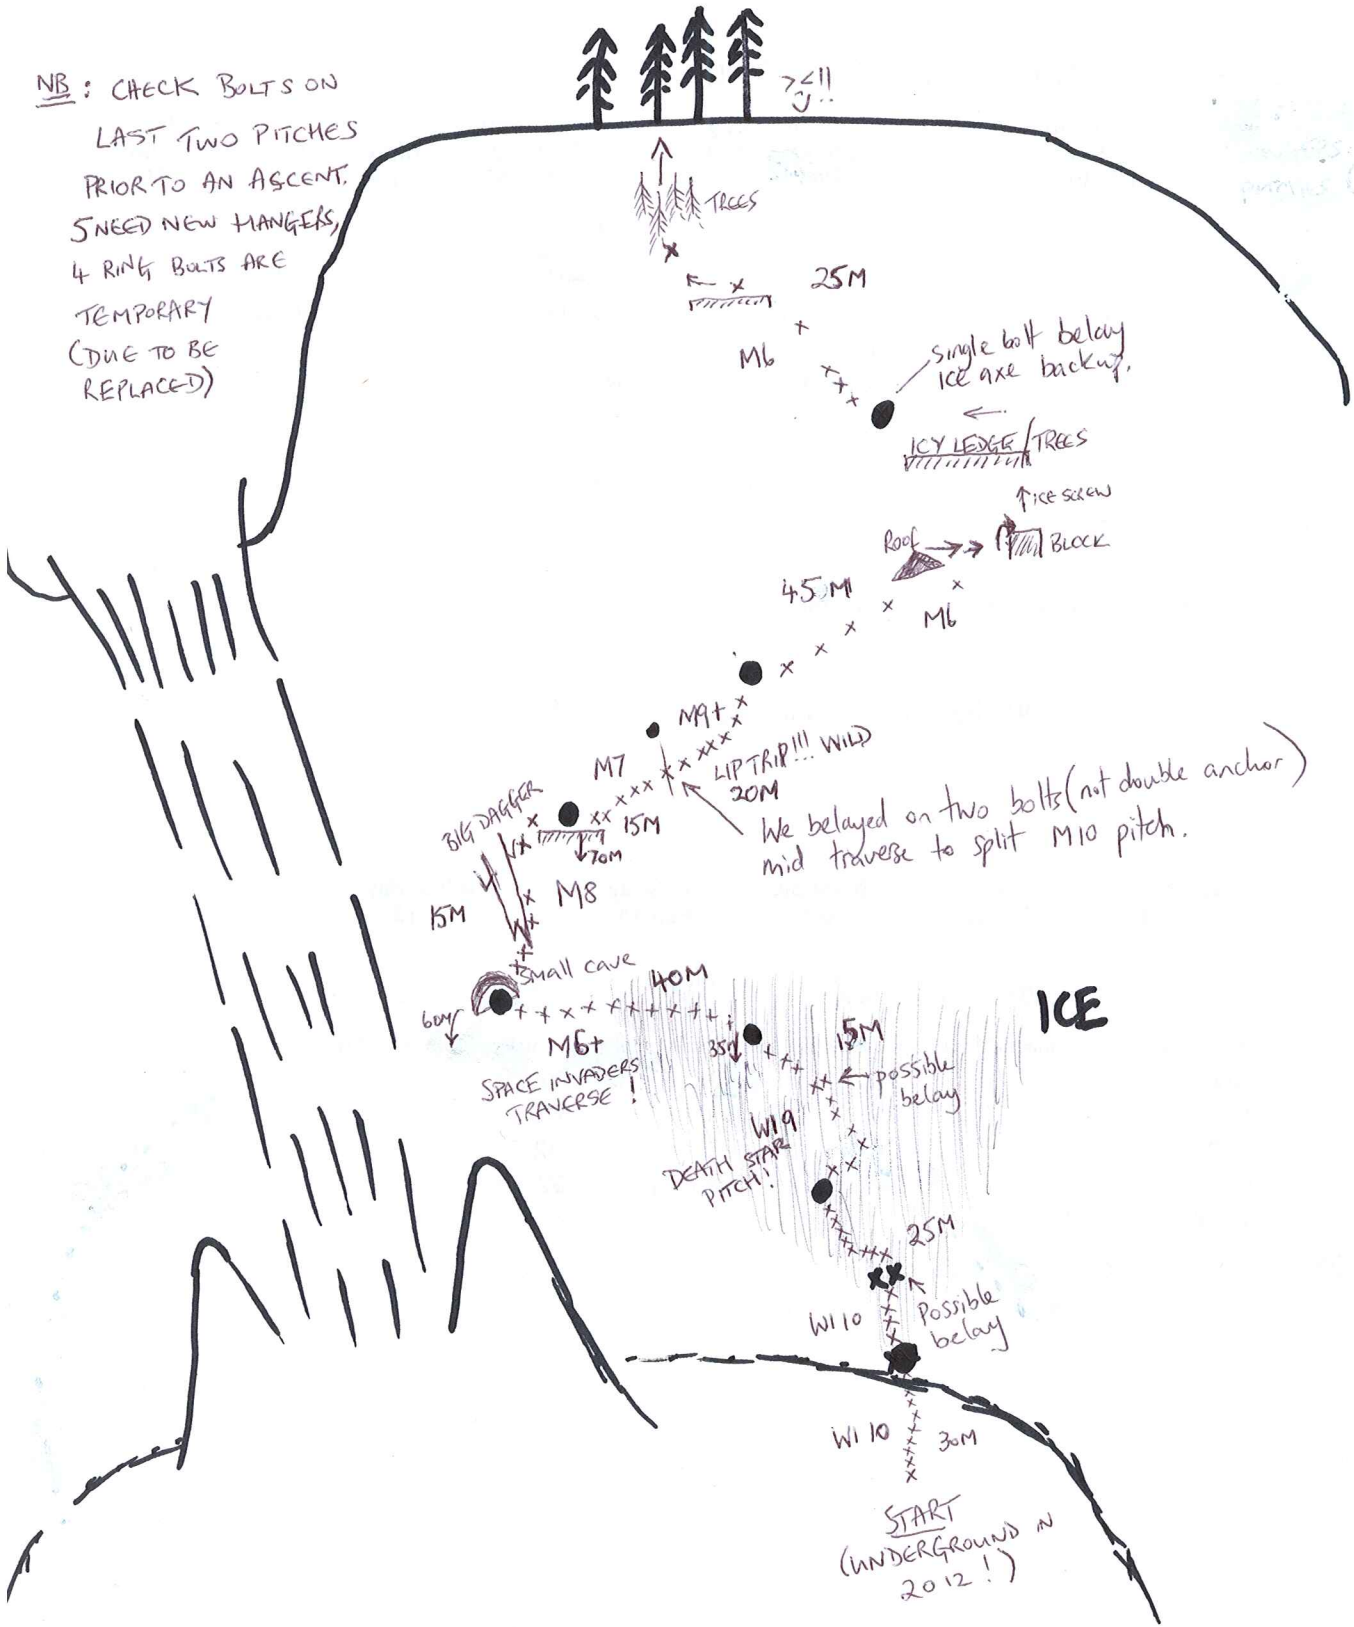 NB: CHECK BOLTS ON
LAST TWO PITCHES
PRIOR TO AN ASCENT.
5 NEED NEW HANGERS,
4 RING BOLTS ARE
TEMPORARY
(DUE TO BE
REPLACED)
TREES
25M
M6
Single bolt belay
Ice axe backup.
ICY LEDGE/TREES
ICE SCREW
ROOF
BLOCK
45M
M6
M9+
LIP TRIP!!! WILD
20M
M7
15M
We belayed on two bolts (not double anchor)
mid traverse to split M10 pitch.
BIG DAGGER
70M
M8
15M
Small cave
40M
60M
M6+
SPACE INVADERS
TRAVERSE!
ICE
35M
15M
possible
belay
WI9
DEATH STAR
PITCH!
25M
WI10
Possible
belay
WI10
30M
START
(UNDERGROUND IN
2012!)